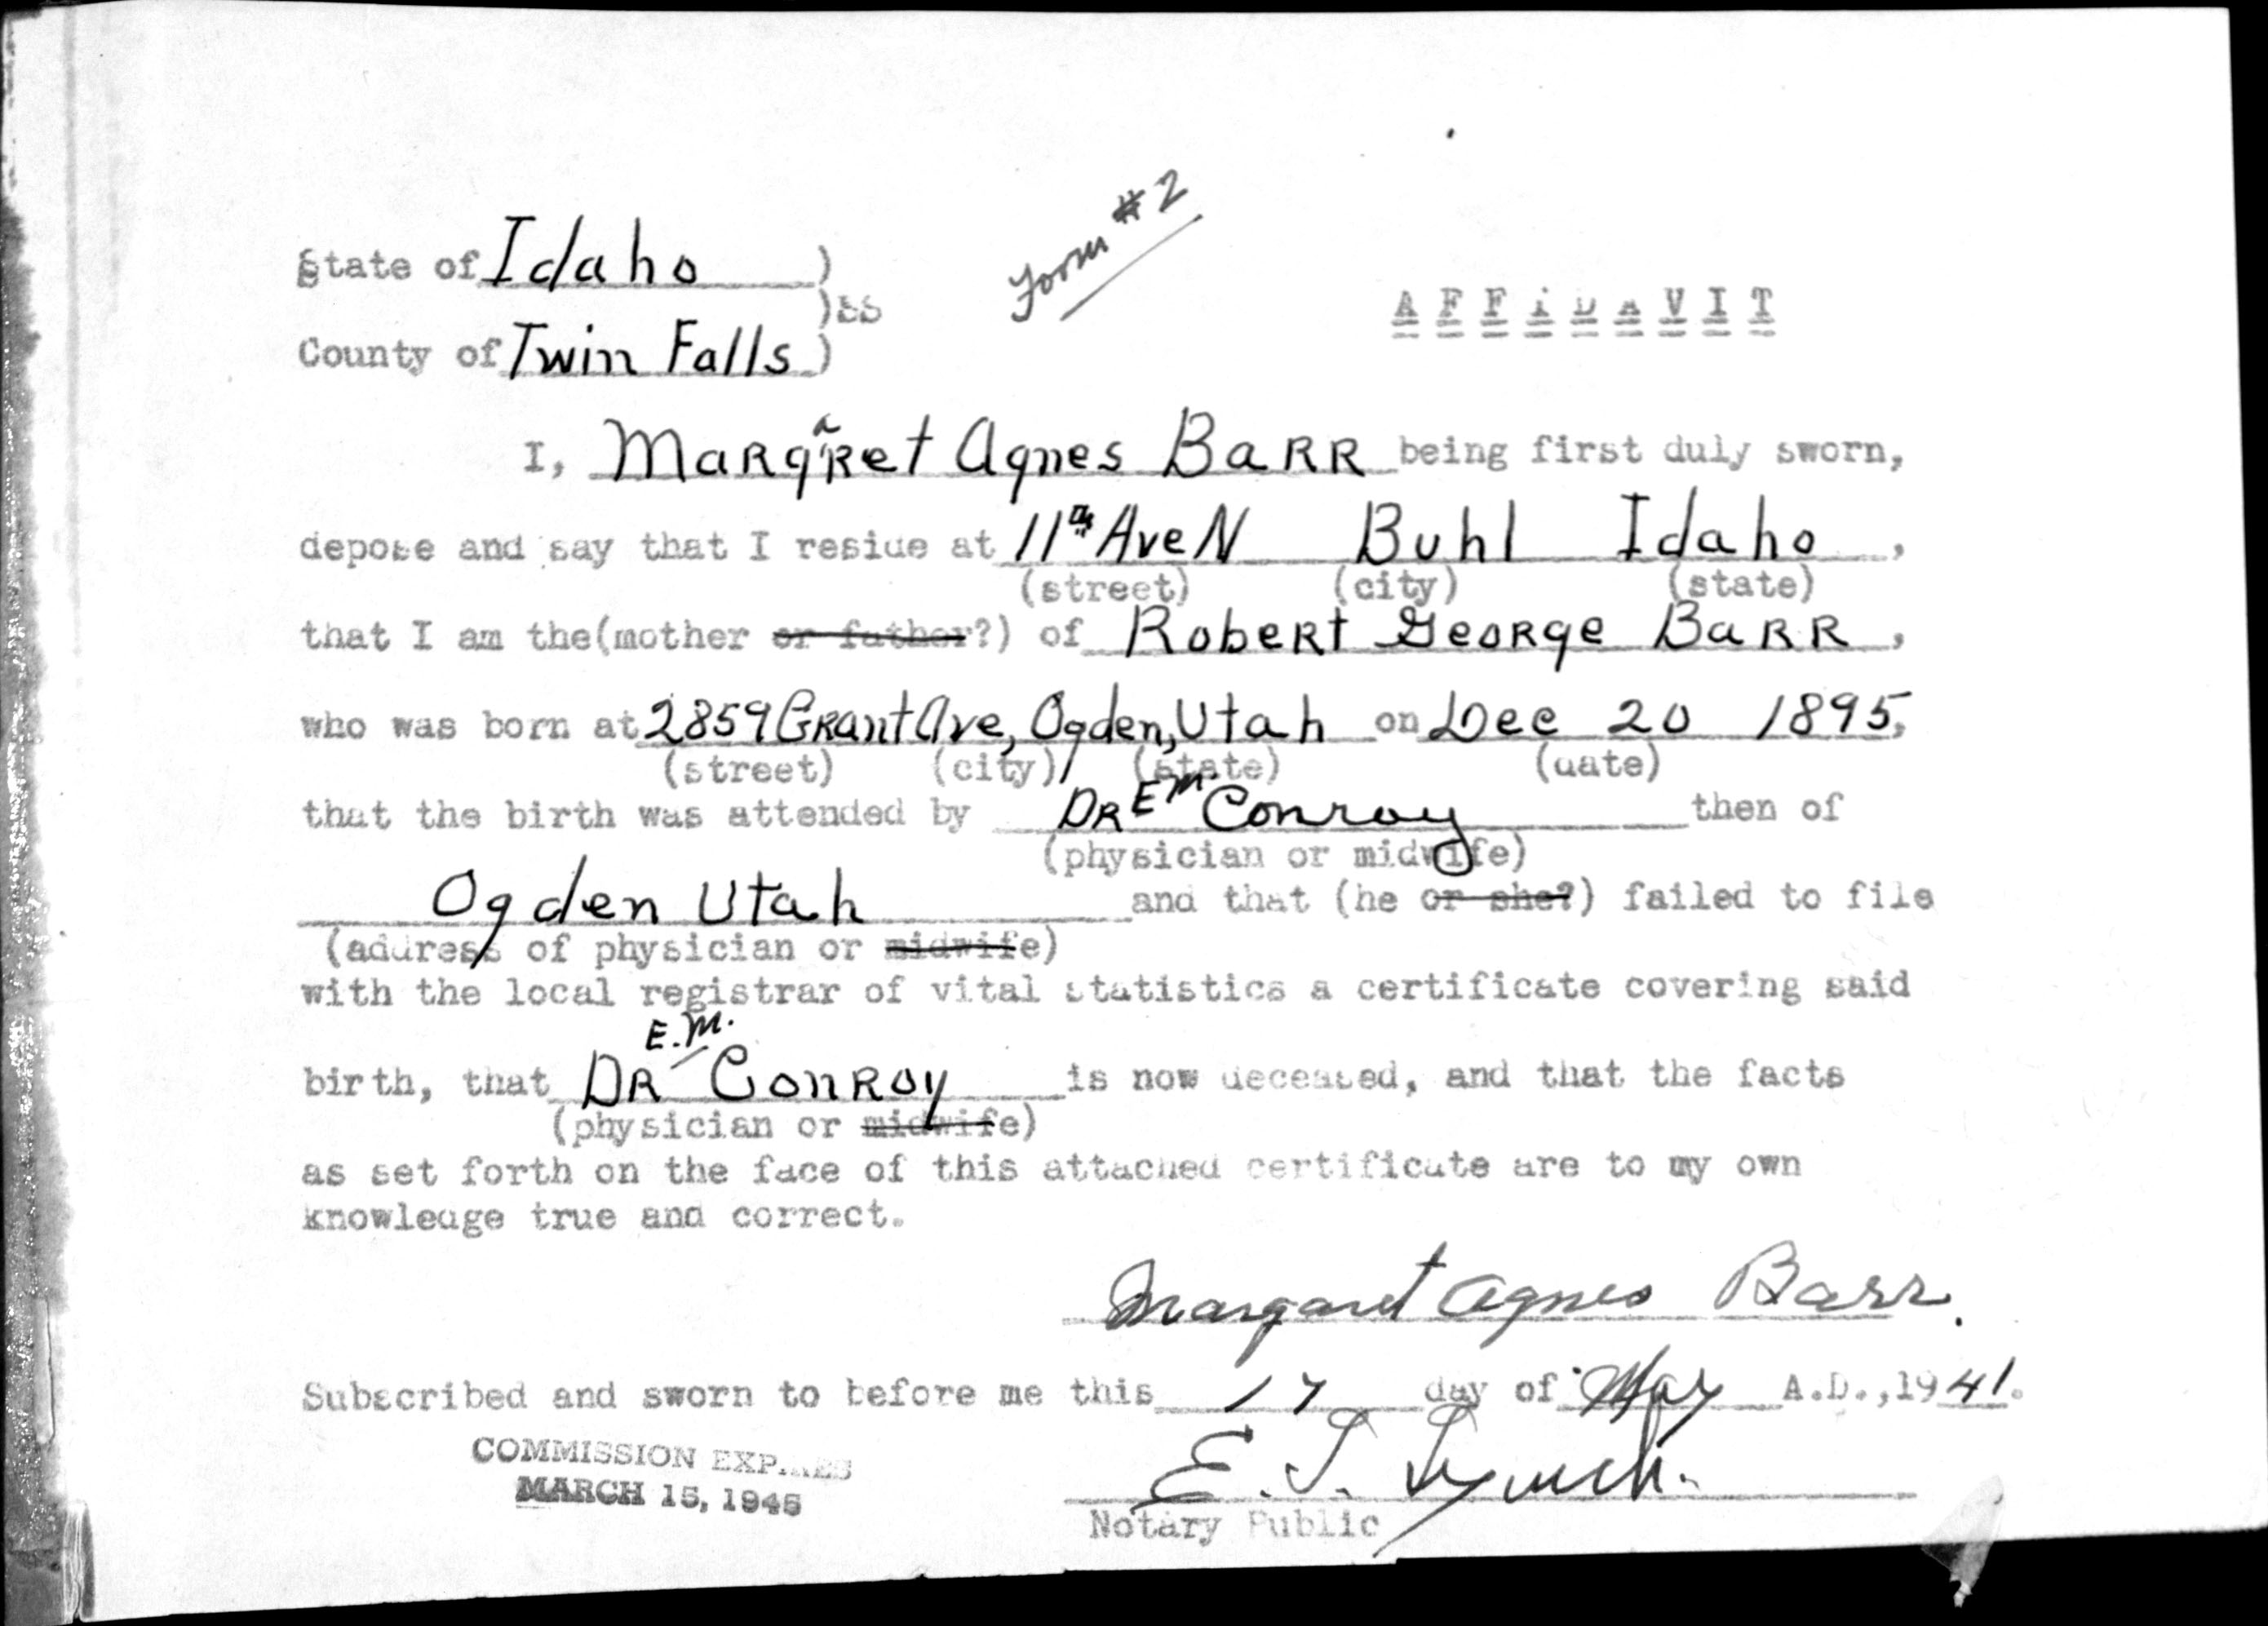 Form #2
State of Idaho )
)ss
AFFIDAVIT
County of Twin Falls )
I, Margaret Agnes Barr being first duly sworn,
depose and say that I reside at 11th Ave N Buhl Idaho,
(street) (city) (state)
that I am the(mother or father?) of Robert George Barr,
who was born at 2859 Grant Ave, Ogden, Utah on Dec 20 1895,
(street) (city) (state) (date)
that the birth was attended by Dr E M. Conroy then of
(physician or midwife)
Ogden Utah and that (he or she?) failed to file
(address of physician or midwife)
with the local registrar of vital statistics a certificate covering said
E.M.
birth, that Dr Conroy is now deceased, and that the facts
(physician or midwife)
as set forth on the face of this attached certificate are to my own
knowledge true and correct.
Margaret Agnes Barr.
Subscribed and sworn to before me this 17 day of May A.D.,1941.
COMMISSION EXPIRES
MARCH 15, 1945
E. J. Lynch.
Notary Public